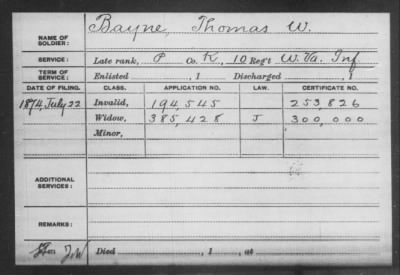 NAME OF SOLDIER: Bayne, Thomas W.
SERVICE: Late rank, P Co. K, 10 Reg't W. Va. Inf.
TERM OF SERVICE: Enlisted , 1 Discharged , 1
DATE OF FILING. CLASS. APPLICATION NO. LAW. CERTIFICATE NO.
1874, July 22 Invalid, 194,545 253,826
Widow, 385,428 J 300,000
Minor,
ADDITIONAL SERVICES:
REMARKS:
Died , 1 , at